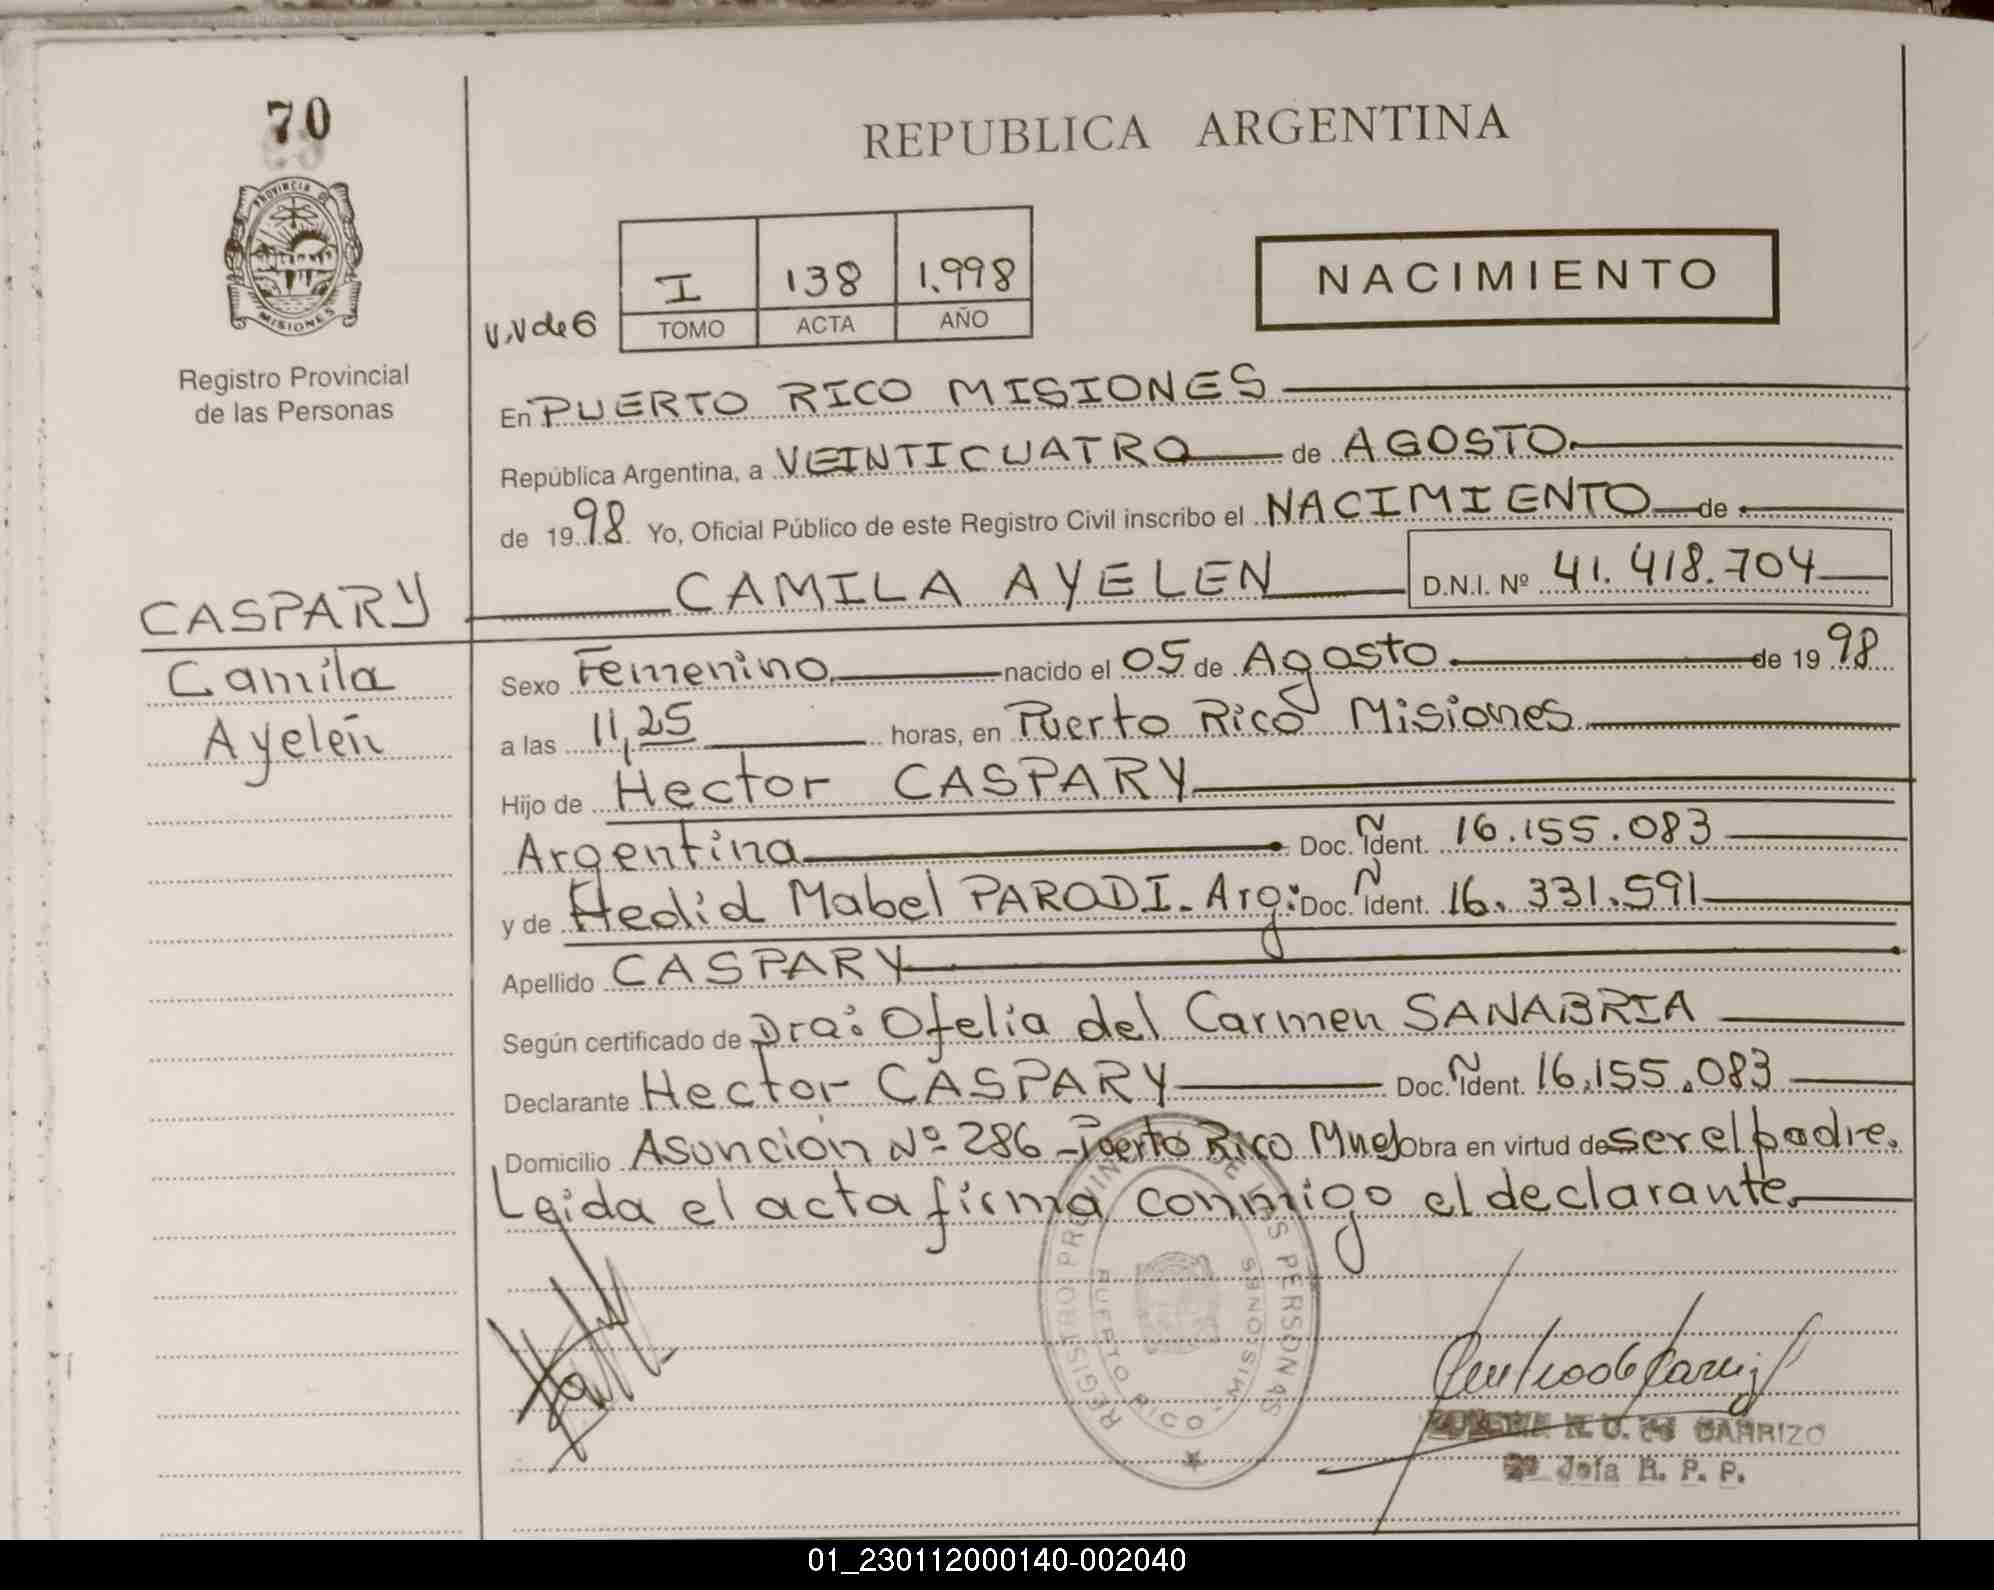 70
PROVINCIA DE
MISIONES
Registro Provincial
de las Personas
REPUBLICA ARGENTINA
V.V de 6
I 138 1.998
TOMO ACTA AÑO
NACIMIENTO
En PUERTO RICO MISIONES
República Argentina, a VEINTICUATRO de AGOSTO
de 1998 Yo, Oficial Público de este Registro Civil inscribo el NACIMIENTO de
CAMILA AYELEN D.N.I. Nº 41.418.704
CASPARY
Camila
Ayelén
Sexo Femenino nacido el 05 de Agosto de 1998
a las 11,25 horas, en Puerto Rico Misiones
Hijo de Hector CASPARY
Argentina Doc. Ident. 16.155.083
y de Hedid Mabel PARODI. Arg: Doc. Ident. 16.331.591
Apellido CASPARY
Según certificado de Dra: Ofelia del Carmen SANABRIA
Declarante Hector CASPARY Doc. Ident. 16.155.083
Domicilio Asunción Nº 286 - Puerto Rico Mnes Obra en virtud de ser el padre.
Leida el acta firma conmigo el declarante
REGISTRO PROVINCIAL DE LAS PERSONAS
PUERTO RICO MISIONES
de CARRIZO
2º Jefa R. P. P.
01_230112000140-002040